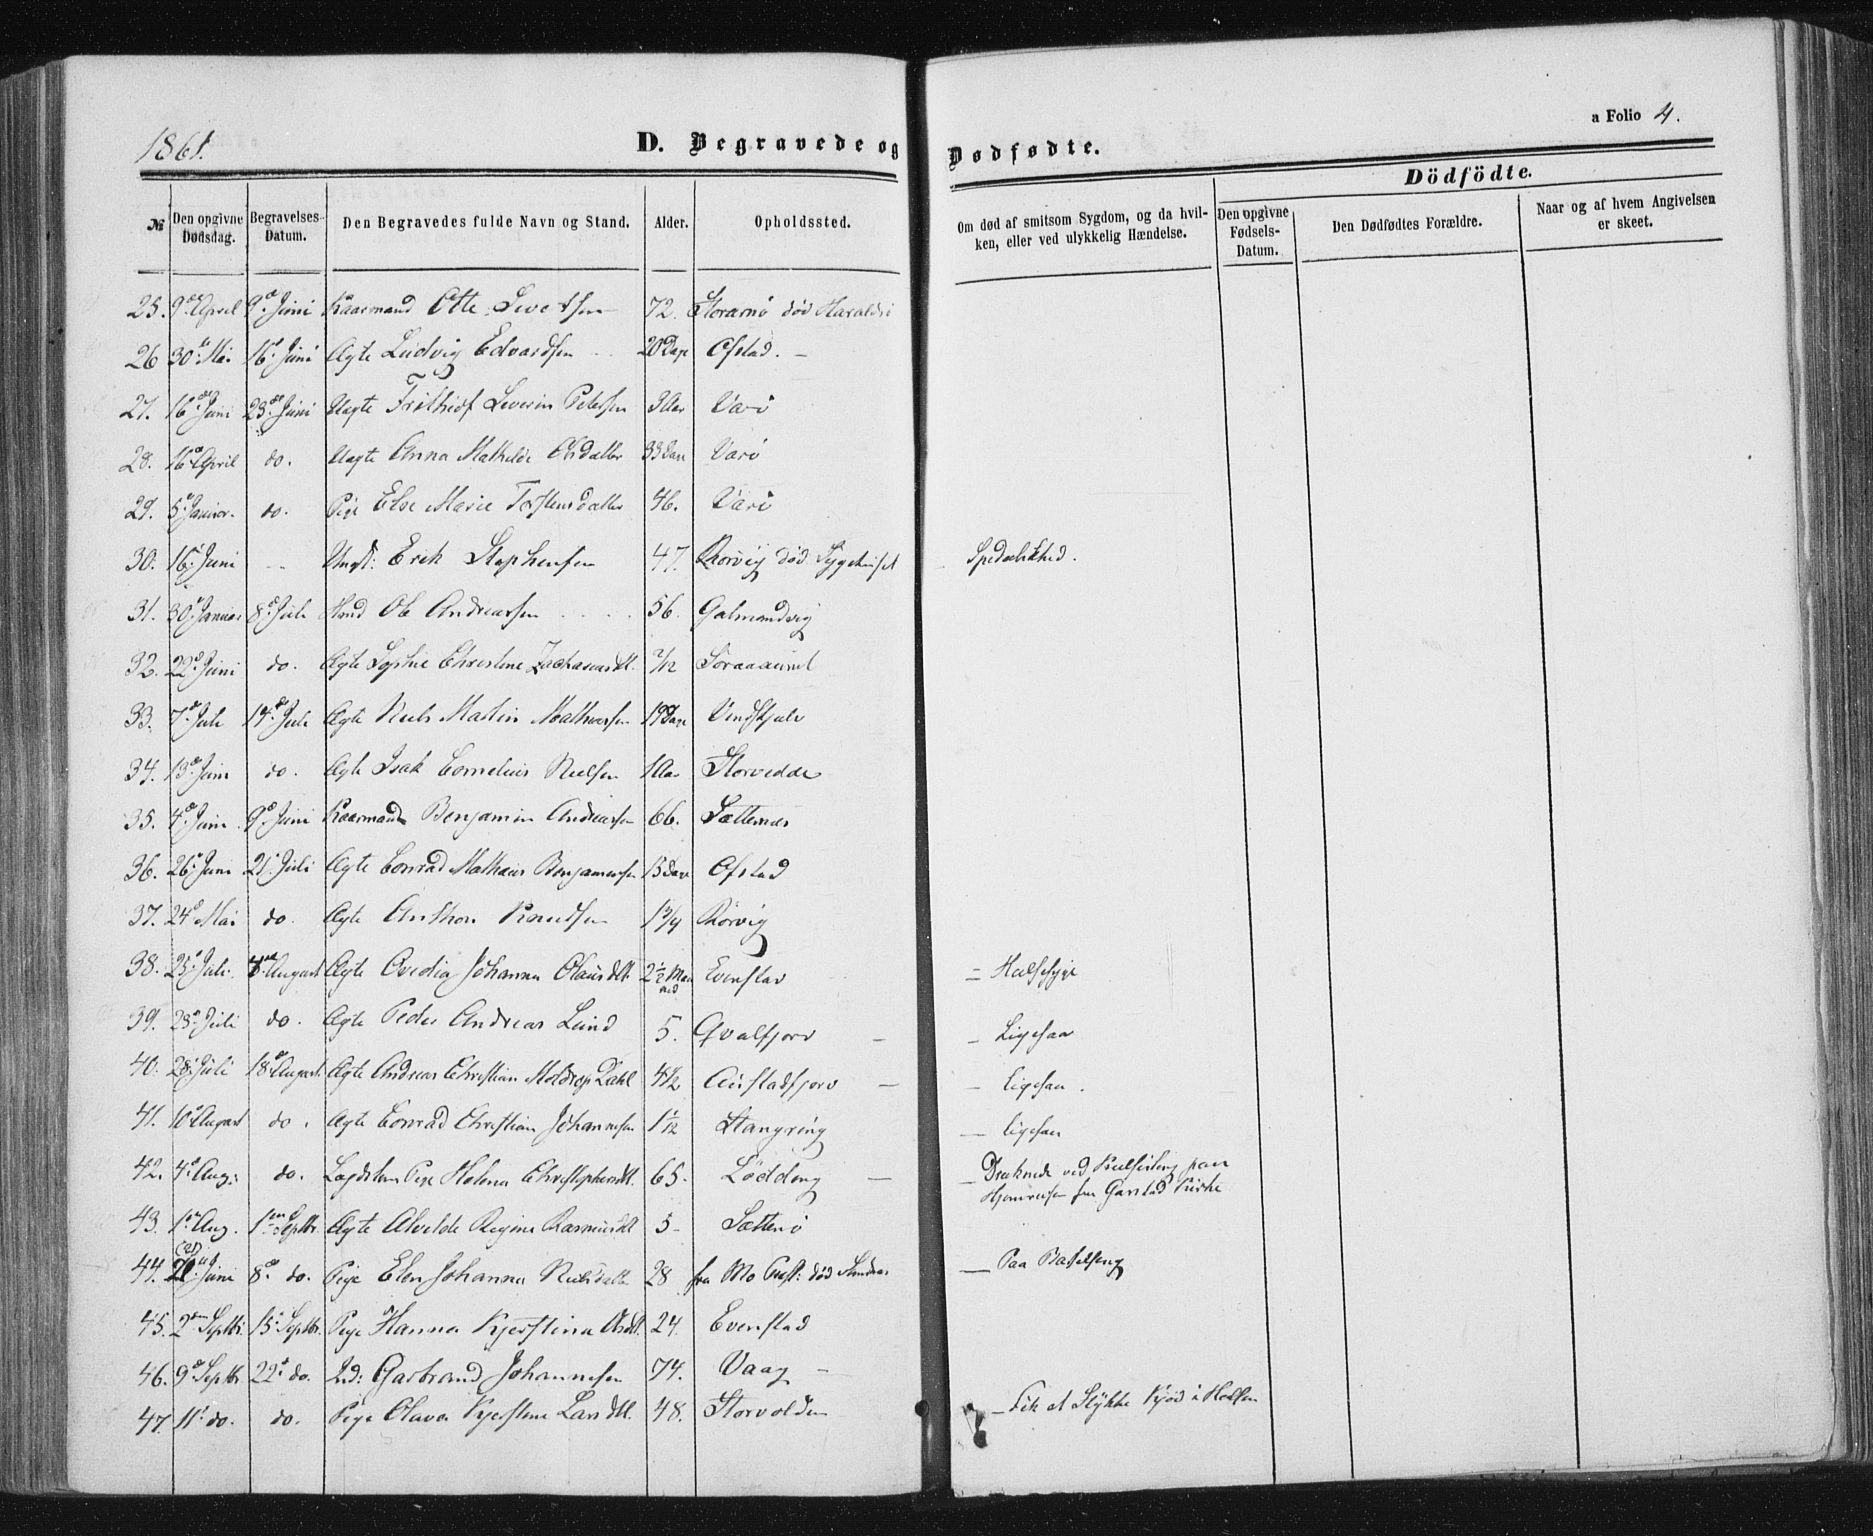 1861.
D. Begravede og Dødfødte.
a Folio 4.
Dödfödte.
№
Den opgivne Dødsdag.
Begravelses-Datum.
Den Begravedes fulde Navn og Stand.
Alder.
Opholdssted.
Om død af smitsom Sygdom, og da hvilken, eller ved ulykkelig Hændelse.
Den opgivne Fødsels-Datum.
Den Dødfødtes Forældre.
Naar og af hvem Angivelsen er skeet.
25. 9de April 9de Juni Kaarmand Otte Sivertsen 72. død
26 30te Mai 16de Juni Ægte Ludvig Edvardsen 20 Dage Ofstad.
27. 16de Juni 23de Juni Uægte Severin Petersen 3 Aar Varö
28. 16de April do. Uægte Anna Mathilde Olsdatter 33 Dage Varö
29. 5te Januar. do. Pige Else Marie Torstensdatter 46. Varö
30. 16de Juni Ungk: Erik Stephensen 47. Rörvig død Sygehuset Spedalskhed.
31. 30te Januar 8de Juli Ole Andreassen 56. Galmandvig
32. 22de Juni do. Ægte Sophie Christine Zachariasdtr. 2/12
33. 7de Juli 14de Juli Ægte Niels Martin Mathiassen 19 Dage
34. 13de Juni do. Ægte Isak Cornelius Nielsen 1 Aar
35. 4de Juni 9de Juni Kaarmand Benjamin Andreassen 66. Sætternæs
36. 26de Juni 21de Juli Ægte Conrad Mathæus Benjaminsen 15 Dage Ofstad
37. 24de Mai do. Ægte Anthon Knudsen 1 3/4 Rörvig
38. 25de Juli 4de August Ægte Ovedia Johanna Olausdtr. 2 1/2 Maaned Evenstad = Halssyge
39. 23de Juli do. Ægte Peder Andreas Lund 5. Qvalfjord – Ligesaa
40. 28de Juli 18de August Ægte Andreas Christian Moldrop Dahl 4 1/2 – ligesaa.
41. 10de August do. Ægte Conrad Christian Johannesen 1 1/12 – ligesaa
42. 4de Aug: do. Lægdslem Pige Helena Christophersdtr. 65. Lödding – Druknede ved paa
Hjemreisen fra Garstad Kirke
43. 1ste Aug. 1ste Septbr. Ægte Alvilde Regine Rasmusdtr 5 – Sætterö
44. Juni 8de do. Pige Elen Johanna Nielsdatter 28 fra Mo Præst: død – Paa Barselseng
45. 2den Septbr. 15de Septbr. Pige Hanna Kjerstina Olsdtr. 24. Evenstad
46. 9de Septbr. 22de do. Ind: Garbrand Johannesen 74. Vaag –
47. 11te do. do. Pige Olava Kjerstine Larsdtr. 48. Storvolden – Fik et Stykke Kjød i Halsen